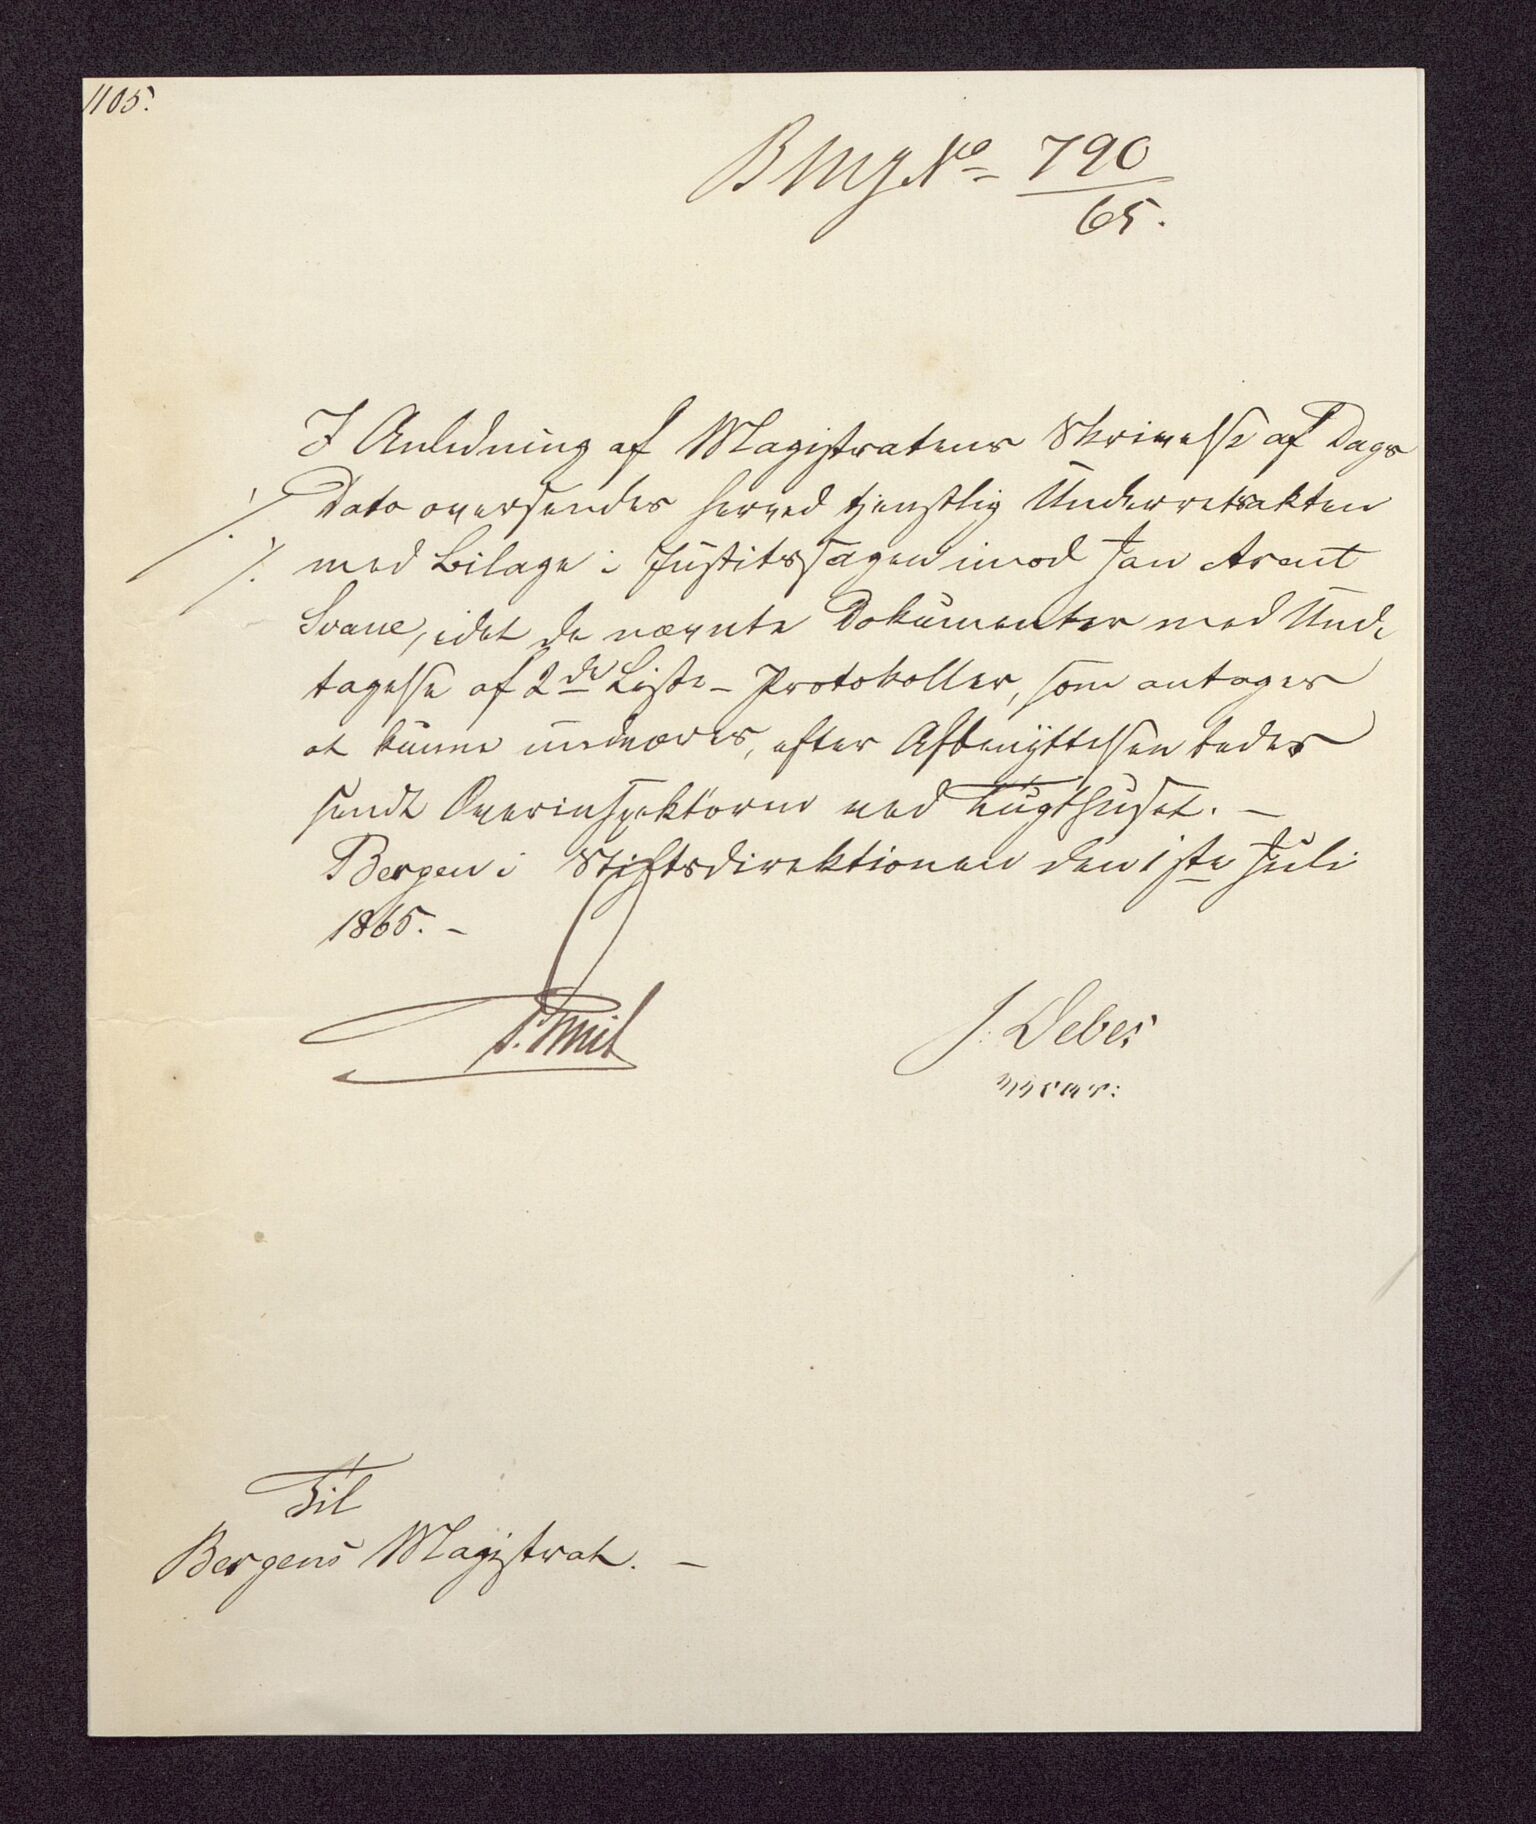 1105.
B Mg No 790
65.
I Anledning af Magistratens Skrivelse af Dags
Dato oversendes herved tjenstlig Underretsakten
med Bilage i Justitssagen imod Jan Arent
Svane, idet de nævnte Dokumenter med Und-
tagelse af 2de Liste-Protokoller, som antages
at kunne undværes, efter Afbenyttelsen bedes
sendt Overinspektören ved Tugthuset. -
Bergen i Stiftsdirektionen den 1ste Juli
1865. -
J. Debes
Til
Bergens Magistrat. -